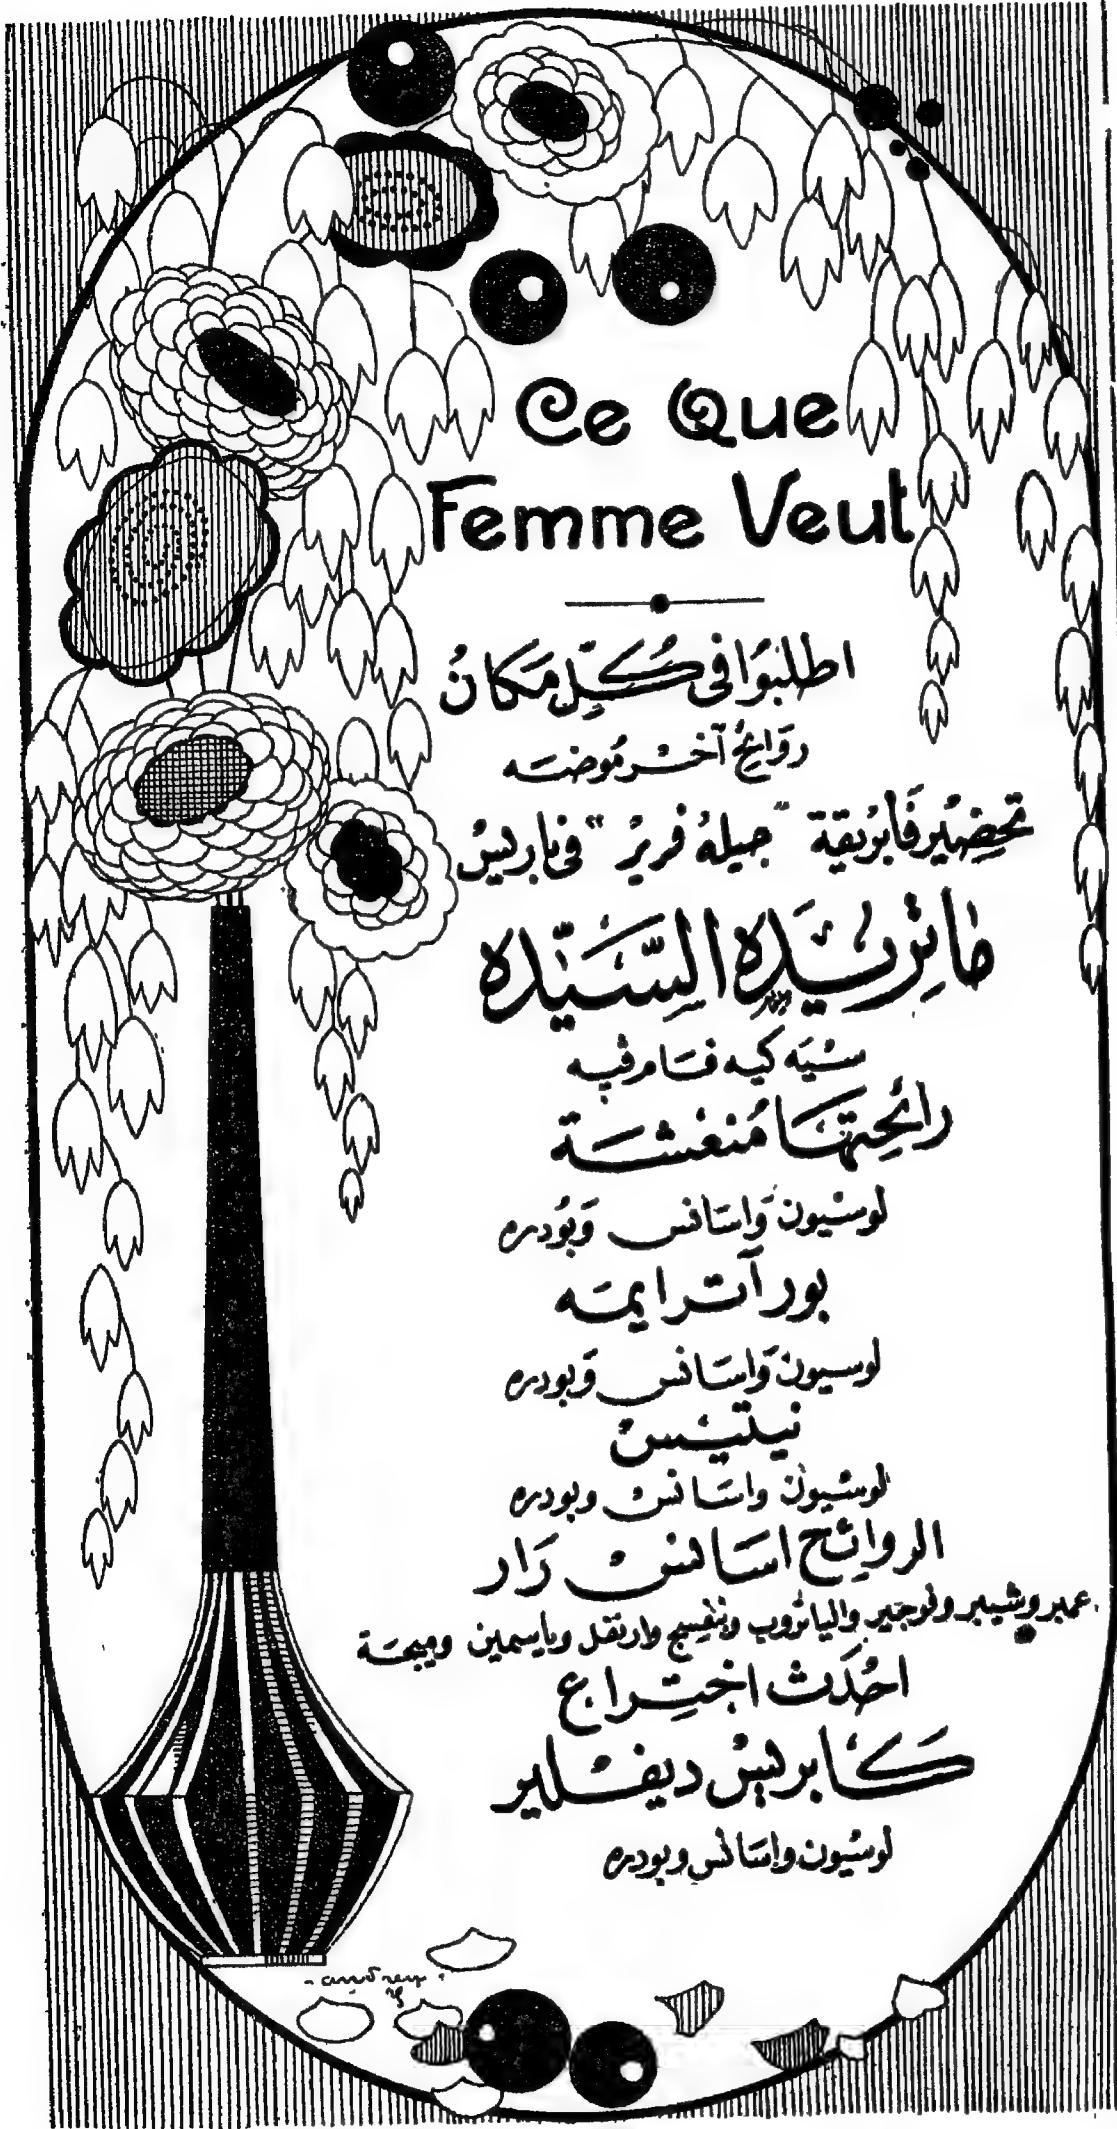 Ce Que
Femme Veut
اطلبوا فى كل مكان
روائح آخر موضه
تحضير فابريقة "جيله فرير" فى باريس
ما تريده السيده
سيه كيه فام فيه
رائحتها منعشة
لوسيون واسانس وبودره
بور آترايمه
لوسيون واسانس وبودره
نيلتيس
لوسيون واسانس وبودره
الروائح اسانس رار
عمبر وشيبر وفوجير والياتروب وبنفسج وارنفل وياسمين
احدث اختراع
كابريس ديفلير
لوسيون واسانس وبودره